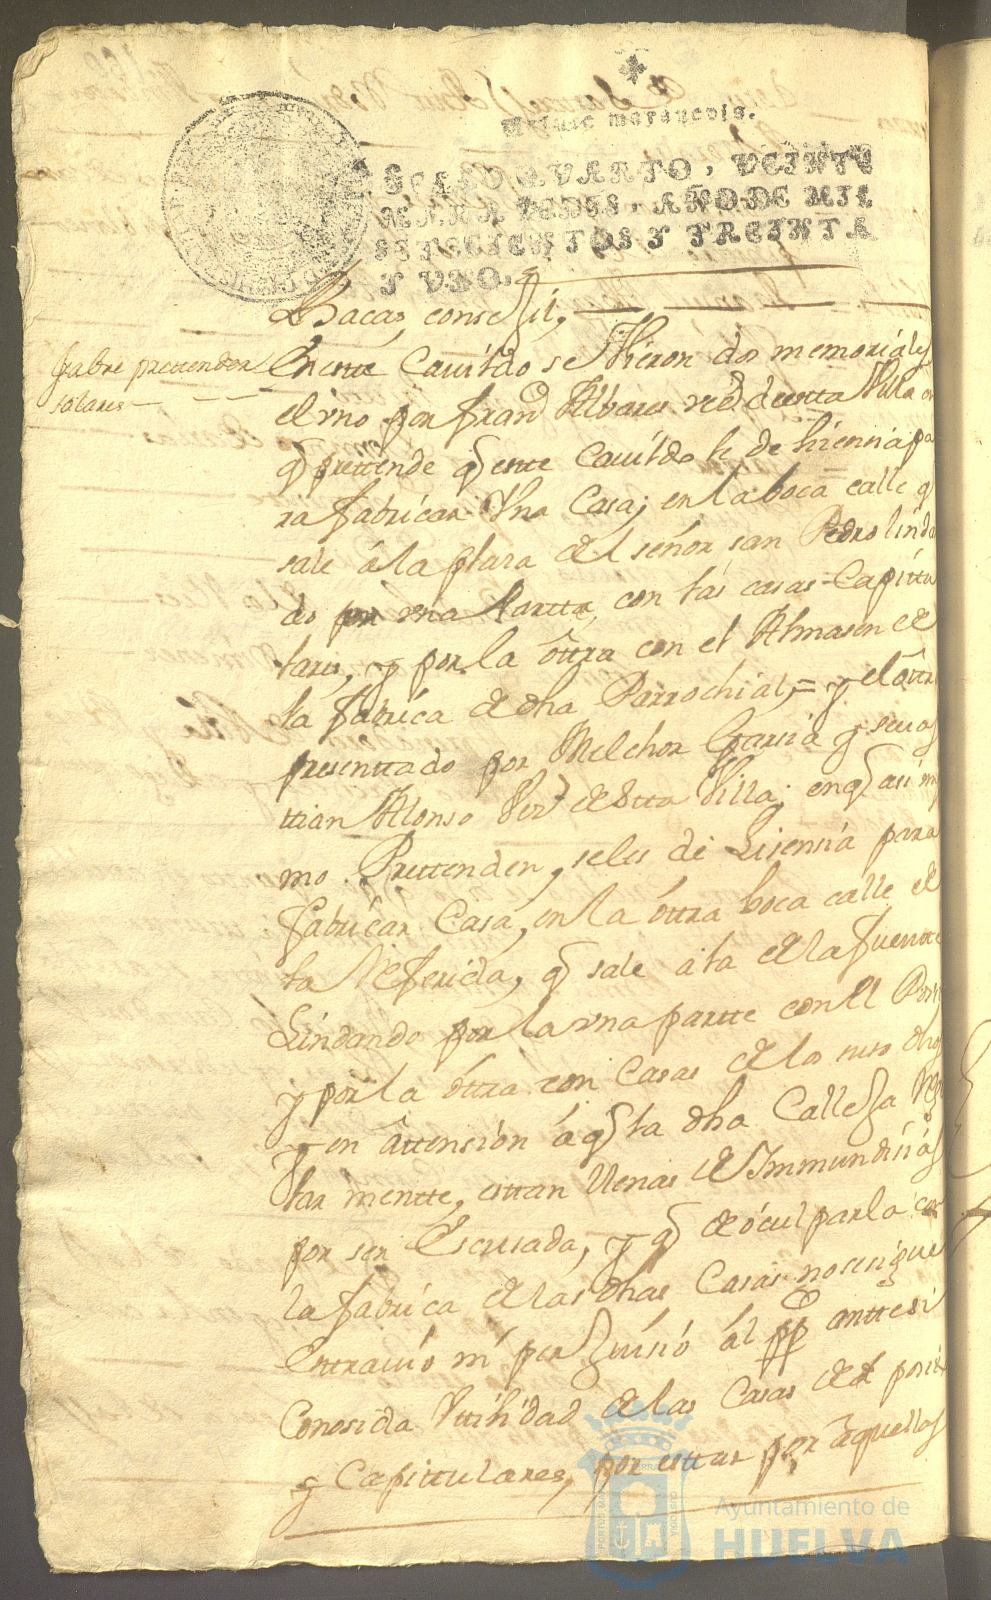 Veinte maravedis.
SELLO QVARTO, VEINTE
MARAVEDIS, AÑO DE MIL
SETECIENTOS Y TREINTA
Y VNO.
Bacas consejil,
sabre prettender
solares
En este Cavildo se Vieron dos memoriales
el vno por Fran.co Albares vez.o de esta Villa en
q pretende q este Cavildo le de lisensia pa
ra fabricar Vna Casa, en la boca calle q
sale â la plasa del señor san Pedro linda
do por vna partte, con las casas Capittu
lares, y por la ôttra con el Almasen de
la fabrica de dha Parrochial, = y el ôttro
presenttado por Melchor Garsia y Sevas
ttian Alonso Vez.s de estta Villa; en q asi mis
mo Prettenden, seles de Lisensia para
fabricar Casa, en la ôttra boca calle de
la Referida, q sale a la de la fuentte
Lindando por la vna partte con el
y por la ôttra con Casas de los suso dhos
y en âttension â q la dha Calleja
lar mentte, esttan llenas de Immundisias
por ser Escusada, y q de ôculparla con
la fabrica de las dhas Casas no se sigue
Extravio ni perjuisio âl pp.co anttes si
Conosida Vttilidad de las Casas de
y Capittulares, por esttar por aquellas
Ayuntamiento de
HUELVA